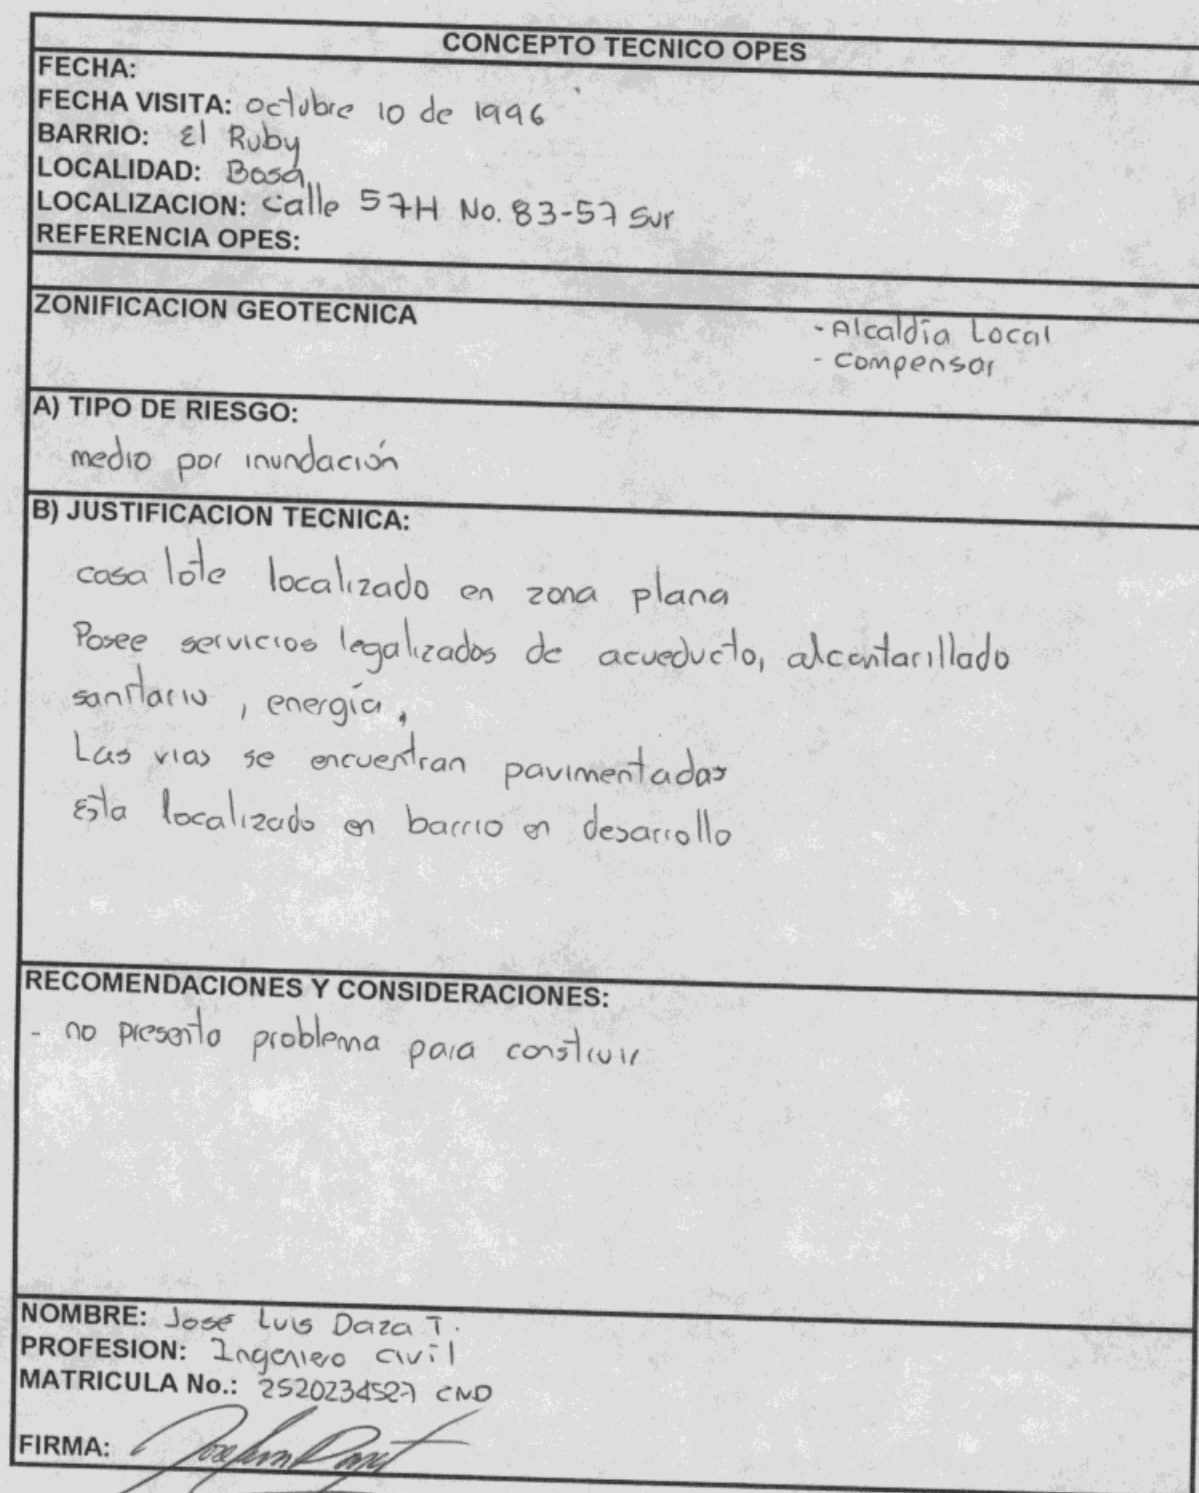 CONCEPTO TECNICO OPES
FECHA:
FECHA VISITA: octubre 10 de 1996
BARRIO: El Ruby
LOCALIDAD: Bosa
LOCALIZACION: Calle 57H No. 83-57 Sur
REFERENCIA OPES:
ZONIFICACION GEOTECNICA
- Alcaldía Local
- Compensar
A) TIPO DE RIESGO:
medio por inundación
B) JUSTIFICACION TECNICA:
casa lote localizado en zona plana
Posee servicios legalizados de acueducto, alcantarillado
sanitario, energía,
Las vias se encuentran pavimentadas
Esta localizado en barrio en desarrollo
RECOMENDACIONES Y CONSIDERACIONES:
- no presenta problema para construir
NOMBRE: José Luis Daza T.
PROFESION: Ingeniero civil
MATRICULA No.: 2520234527 CND
FIRMA: